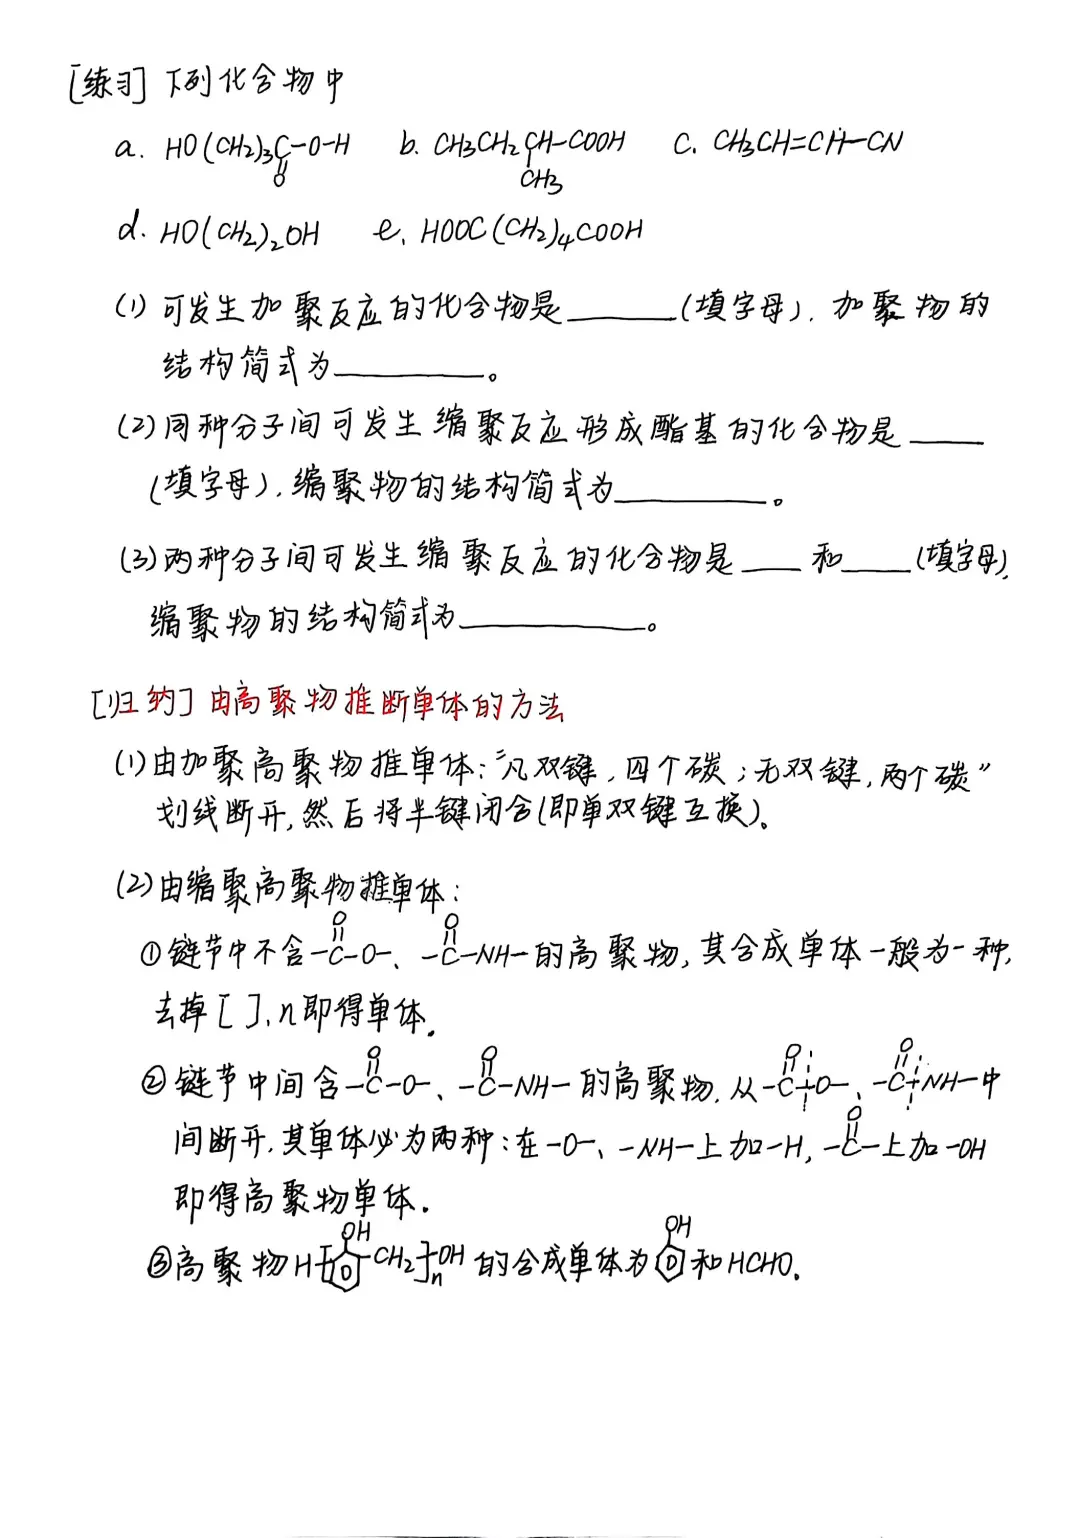 [练习] 下列化合物中
a. HO(CH2)3C-O-H b. CH3CH2CH-COOH c. CH3CH=CH-CN
O CH3
d. HO(CH2)2OH e. HOOC(CH2)4COOH
(1) 可发生加聚反应的化合物是______(填字母), 加聚物的
结构简式为________。
(2) 同种分子间可发生缩聚反应形成酯基的化合物是____
(填字母), 缩聚物的结构简式为________。
(3) 两种分子间可发生缩聚反应的化合物是___和____(填字母),
缩聚物的结构简式为__________。
[归纳] 由高聚物推断单体的方法
(1) 由加聚高聚物推单体:"凡双键,四个碳;无双键,两个碳"
划线断开,然后将半键闭合(即单双键互换)。
(2) 由缩聚高聚物推单体:
O O
①链节中不含-C-O-、-C-NH-的高聚物,其合成单体一般为一种,
去掉[ ]、n即得单体.
O O O O
②链节中间含-C-O-、-C-NH-的高聚物,从-C-O-、-C-NH-中
O
间断开,其单体必为两种:在-O-、-NH-上加-H,-C-上加-OH
即得高聚物单体.
OH OH
③高聚物H[CH2]nOH的合成单体为和HCHO.